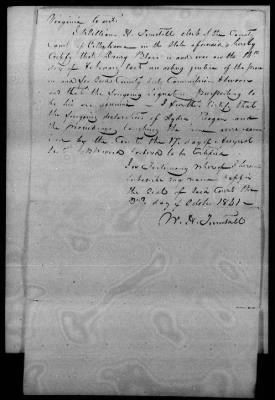 Virginia to wit:
I William H. Tunstall clerk of the County
Court of Pittsylvania in the State aforesaid hereby
Certify that Drury Blair is and was on the
day of February last an acting justice of the peace
in and for said County duly Commissioned & sworn
and that the foregoing signature purporting to
be his are genuine — I further certify that
the foregoing declaration of Lydia
and the proceedings touching the same were
by the Court the 17. day of August
to be certified
In Testimony whereof I hereunto
subscribe my name & affix
the Seal of said Court this
day of October 1841 —
W. H. Tunstall